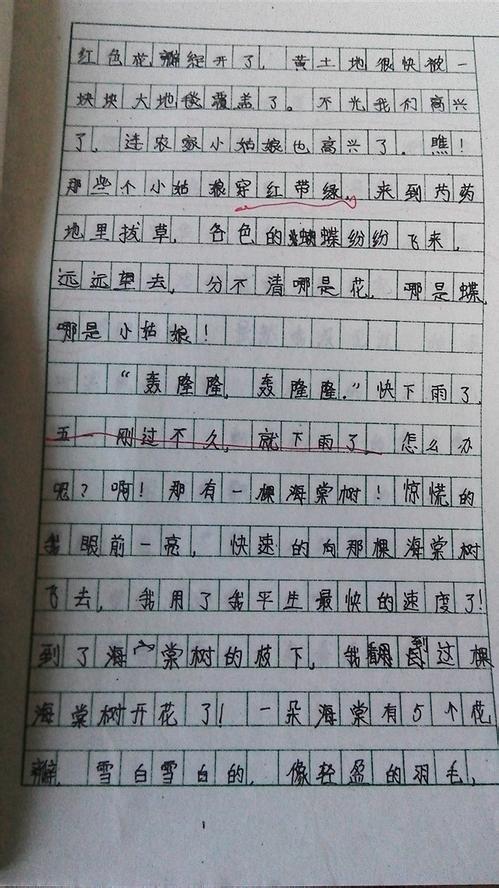 红色花瓣绽开了，黄土地很快被一
块块大地毯覆盖了。不光我们高兴
了，连农家小姑娘也高兴了。瞧！
那些个小姑娘穿红带缘，来到芍药
地里拔草，各色的蝴蝶纷纷飞来，
远远望去，分不清哪是花，哪是蝶，
哪是小姑娘！
“轰隆隆，轰隆隆。”快下雨了，
五一刚过不久，就下雨了，怎么办
呢？啊！那有一棵海棠树！惊慌的
我眼前一亮，快速的向那棵海棠树
飞去，我用了我平生最快的速度了！
到了海棠树的枝下，我看到过棵
海棠树开花了！一朵海棠有5个花
瓣，雪白雪白的，像轻盈的羽毛，